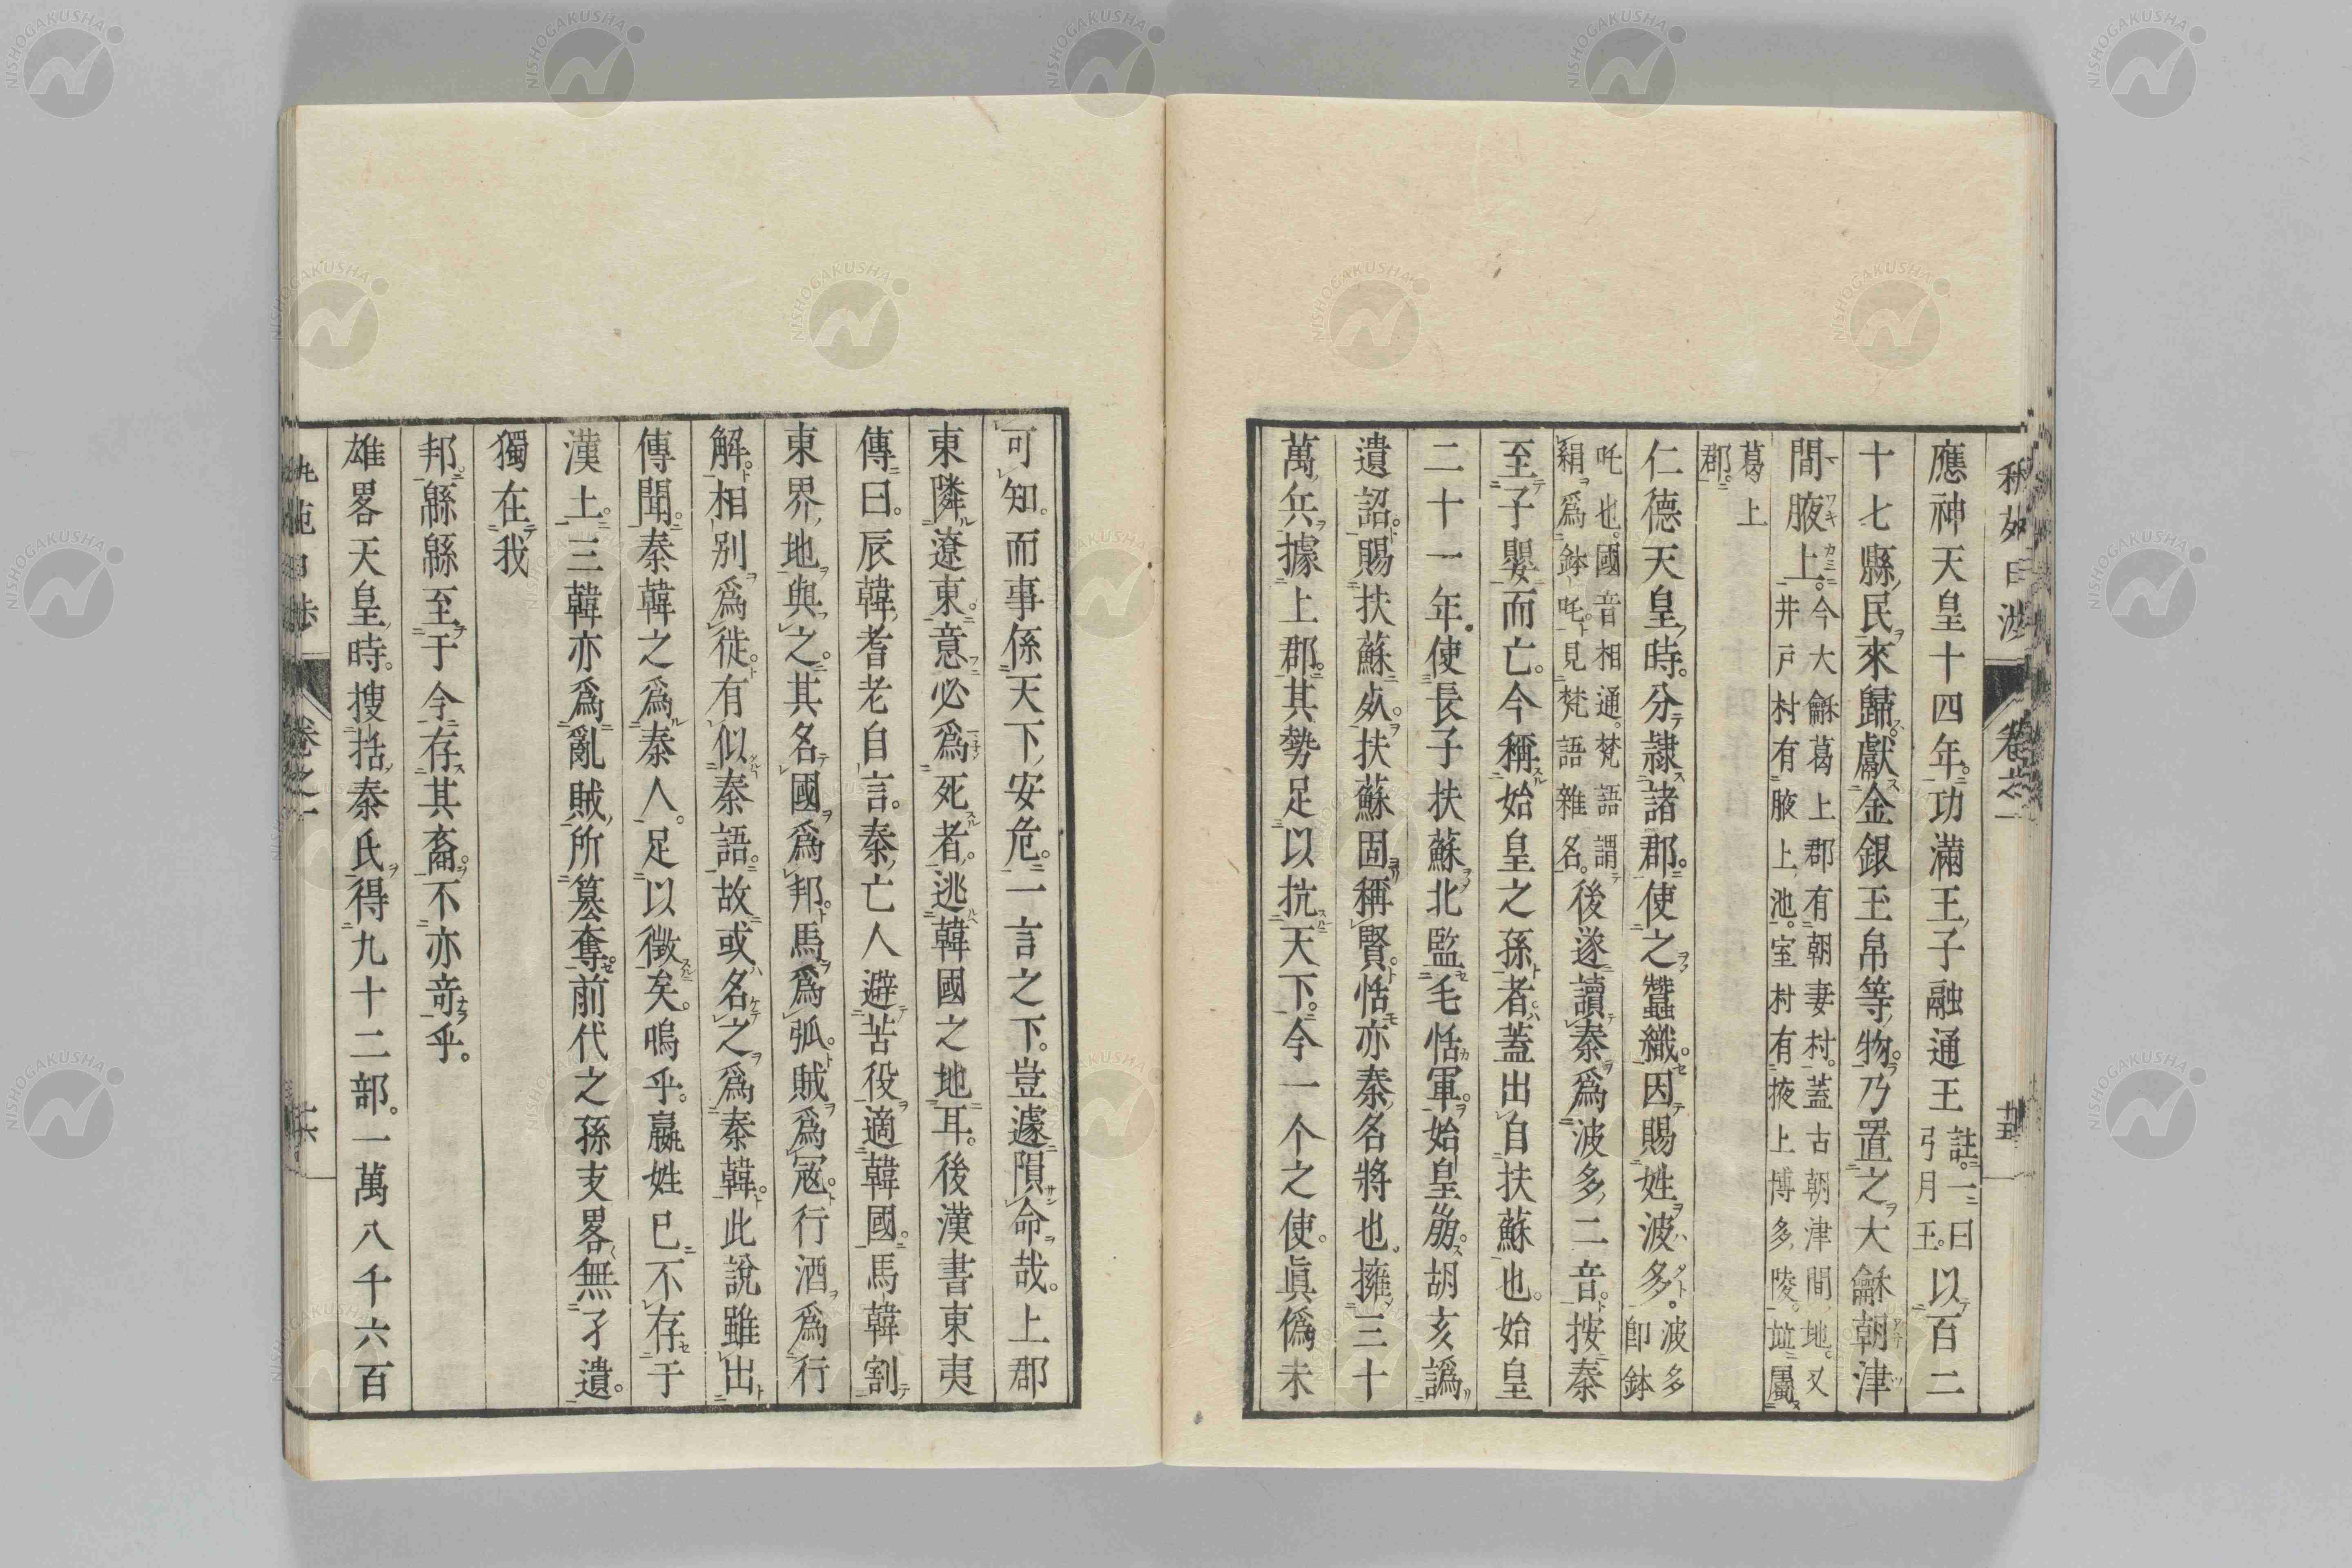 應神天皇十四年。功滿王子融通王註一曰弓月王。以百二
十七縣民來歸。獻金銀玉帛等物。乃置之大龢朝津
間腋上。今大龢葛上郡有朝妻村。蓋古朝津間地。又井戸村有腋上池。室村有掖上博多陵。並屬
葛上郡。
仁德天皇時。分隷諸郡。使之蠶織。因賜姓波多。波多卽鉢
吒也。國音相通。梵語謂絹爲鉢吒。見梵語雜名。後遂讀秦爲波多二音。按秦
至子嬰而亡。今稱始皇之孫者。蓋出自扶蘇也。始皇
二十一年。使長子扶蘇北監蒙恬軍。始皇崩。胡亥譌
遺詔。賜扶蘇死。扶蘇固稱賢。恬亦秦名將也。擁三十
萬兵據上郡。其勢足以抗天下。今一个之使。眞僞未
可知。而事係天下安危。一言之下。豈遽隕命哉。上郡
東隣遼東。意必爲死者。逃韓國之地耳。後漢書東夷
傳曰。辰韓耆老自言。秦亡人避苦役適韓國。馬韓割
東界地與之。其名國爲邦。馬爲弧。賊爲寇。行酒爲行
解。相別爲徙。有似秦語。故或名之爲秦韓。此說雖出
傳聞。秦韓之爲秦人。足以徵矣。嗚乎。嬴姓已不存于
漢土。三韓亦爲亂賊所簒奪。前代之孫支畧無孑遺。
獨在我
邦。緜緜至于今存其裔。不亦奇乎。
雄畧天皇時。搜括秦氏。得九十二部。一萬八千六百
卷之一